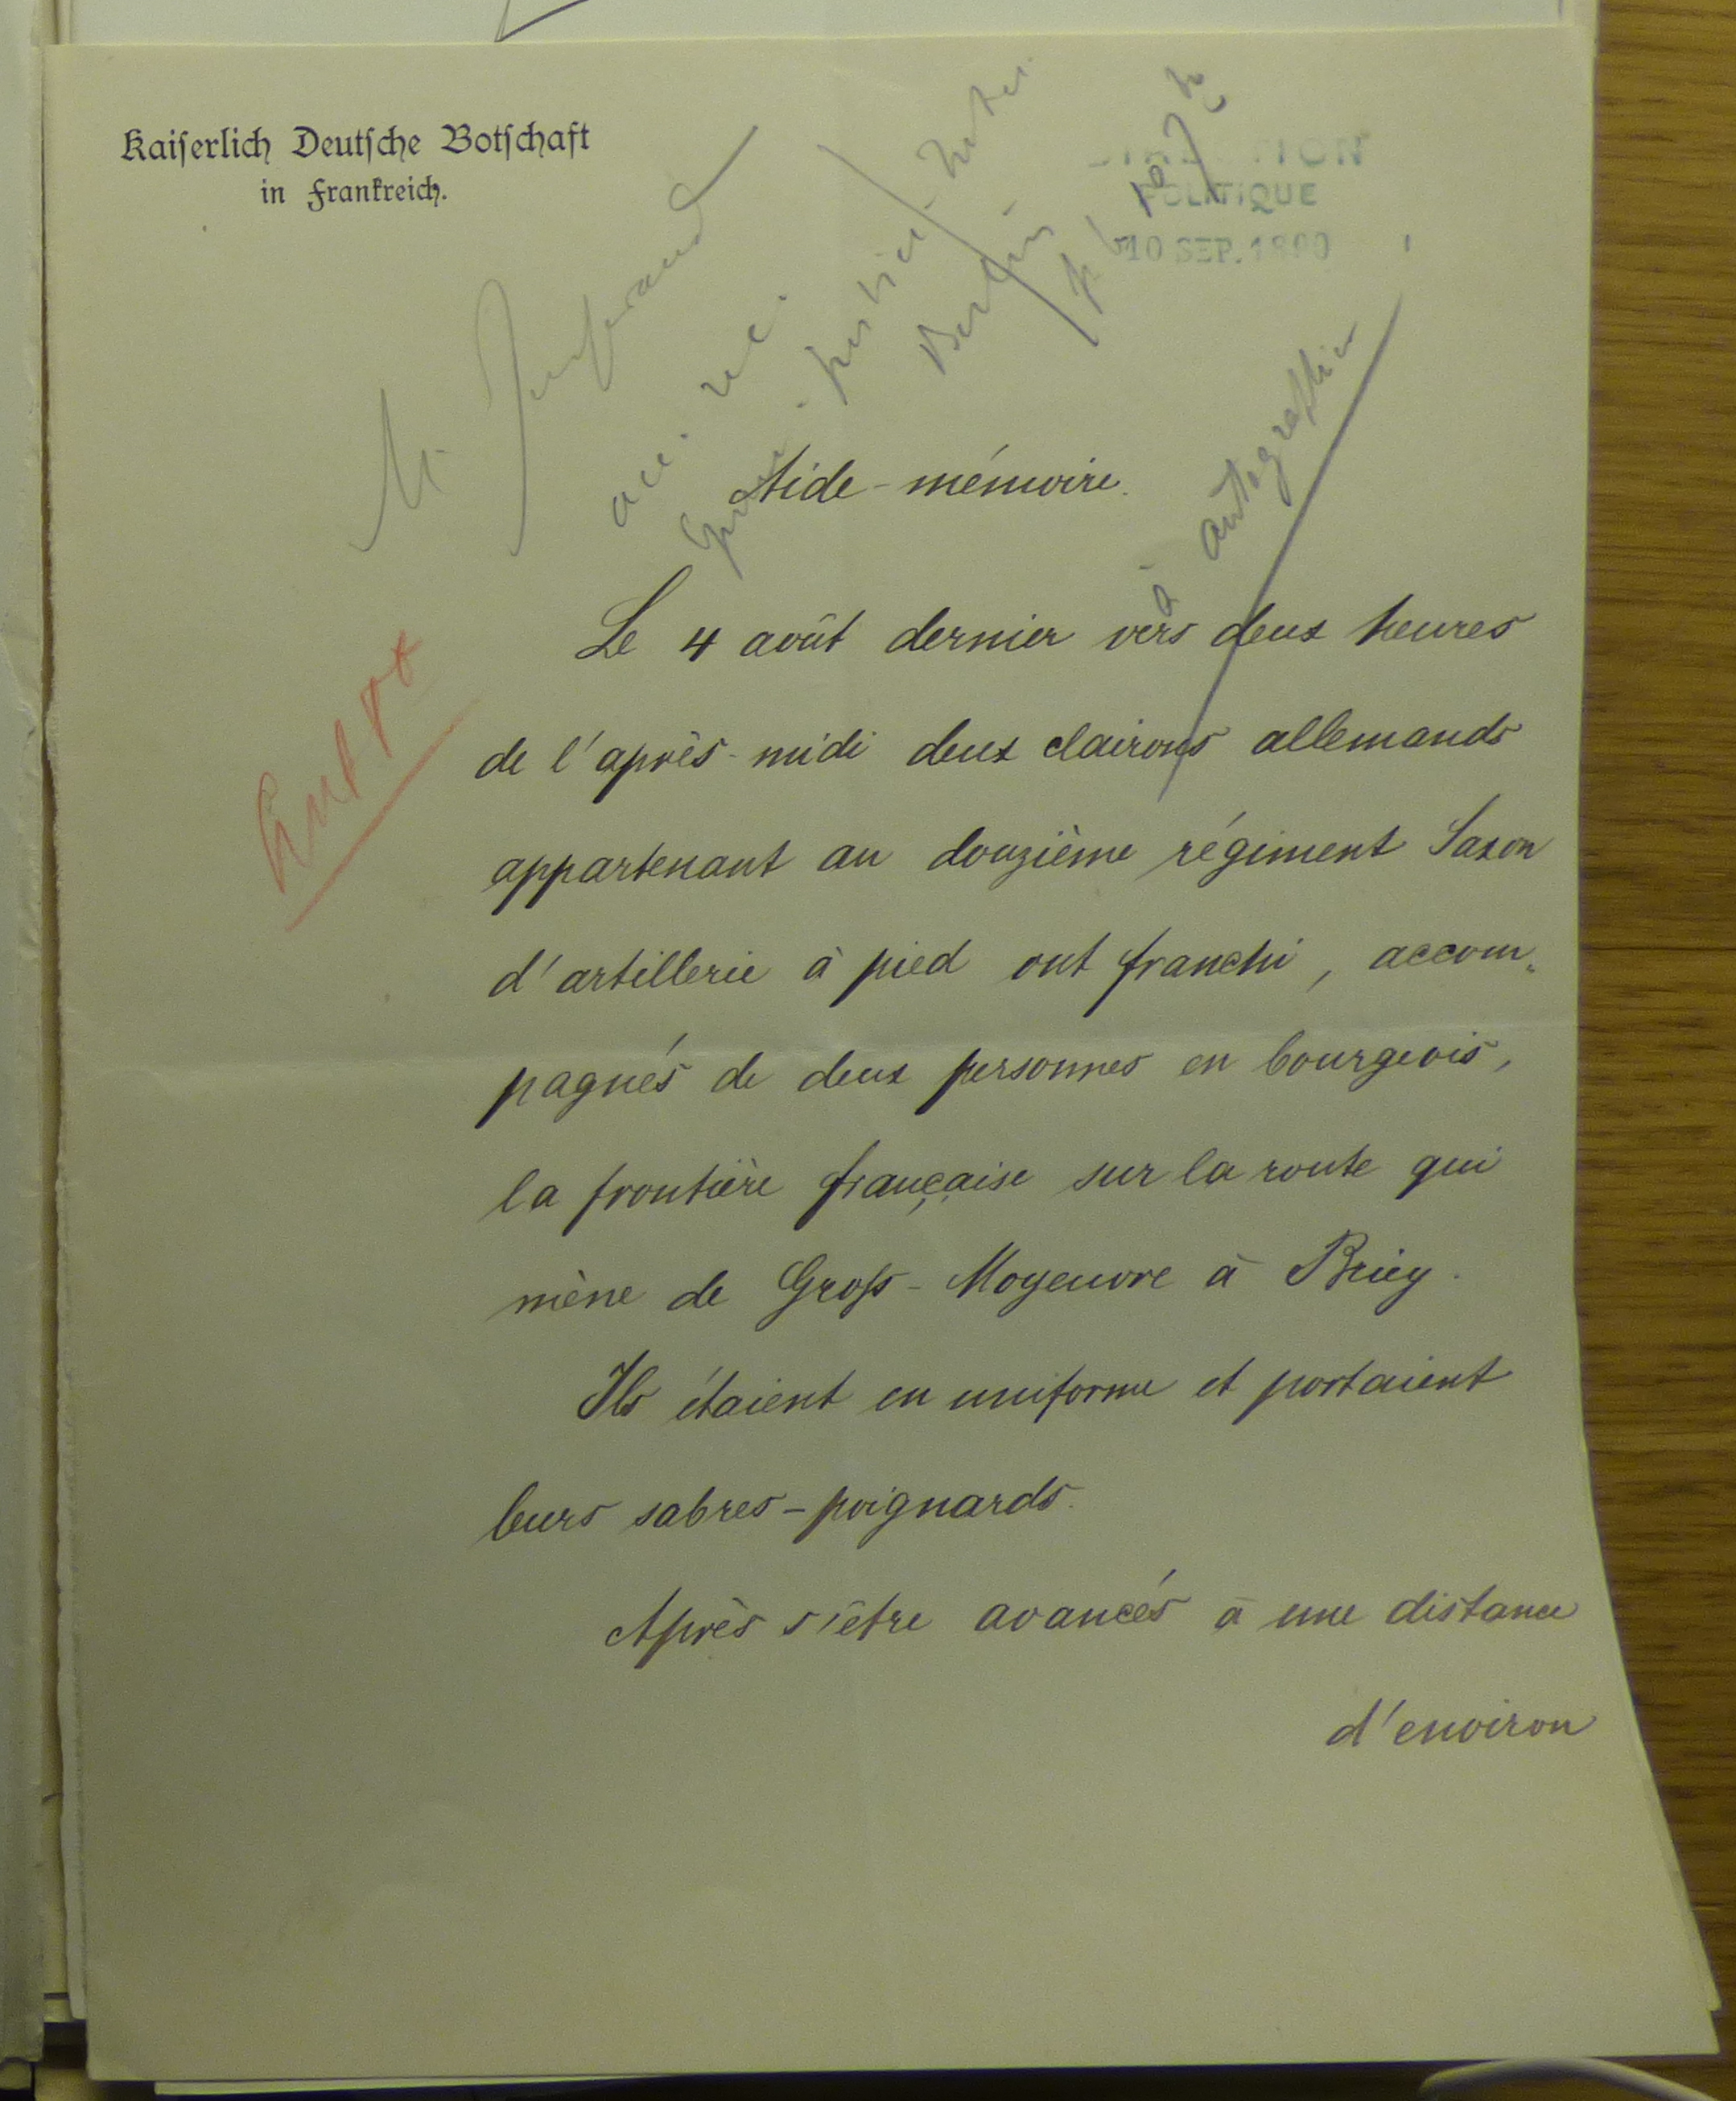 Kaiserlich Deutsche Botschaft
in Frankreich.
POLITIQUE
10 SEP.
à autographier
Aide-mémoire.
Le 4 août dernier vers deux heures
de l'après-midi deux clairons allemands
appartenant au douzième régiment Saxon
d'artillerie à pied ont franchi, accom-
pagnés de deux personnes en bourgeois,
la frontière française sur la route qui
mène de Groß-Moyeuvre à Briey.
Ils étaient en uniforme et portaient
leurs sabres-poignards.
Après s'être avancés à une distance
d'environ